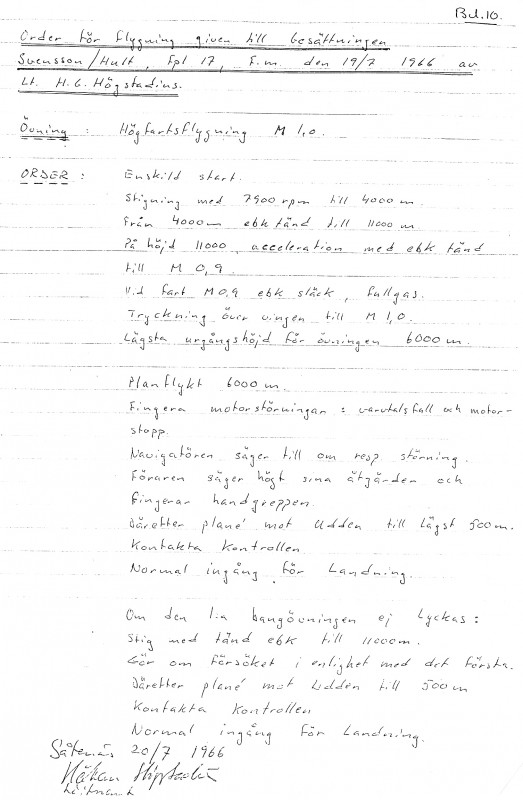 Bil. 10.
Order för flygning given till besättningen
Svensson/Hult, Fpl 17, F.m. den 19/7 1966 av
Lt. H.G. Högstadius.
Övning : Högfartsflygning M 1,0.
ORDER : Enskild start.
Stigning med 7900 rpm till 4000 m.
Från 4000 m ebk tänd till 11000 m
På höjd 11000 acceleration med ebk tänd
till M 0,9.
Vid fart M 0,9 ebk släck, fullgas.
Tryckning över vingen till M 1,0.
Lägsta urgångshöjd för övningen 6000 m.
Planflykt 6000 m.
Fingera motorstörningar : varvtalsfall och motor-
stopp.
Navigatören säger till om resp störning.
Föraren säger högt sina åtgärden och
fingerar handgreppen.
Därefter plané mot Udden till lägst 500 m.
Kontakta Kontrollen
Normal ingång för Landning.
Om den 1:a bangövningen ej lyckas :
Stig med tänd ebk till 11000 m.
Gör om försöket i enlighet med det första.
Därefter plané mot Udden till 500 m
Kontakta Kontrollen
Normal ingång för Landning.
Såtenäs 20/7 1966
Håkan Högstadius
Löjtnant